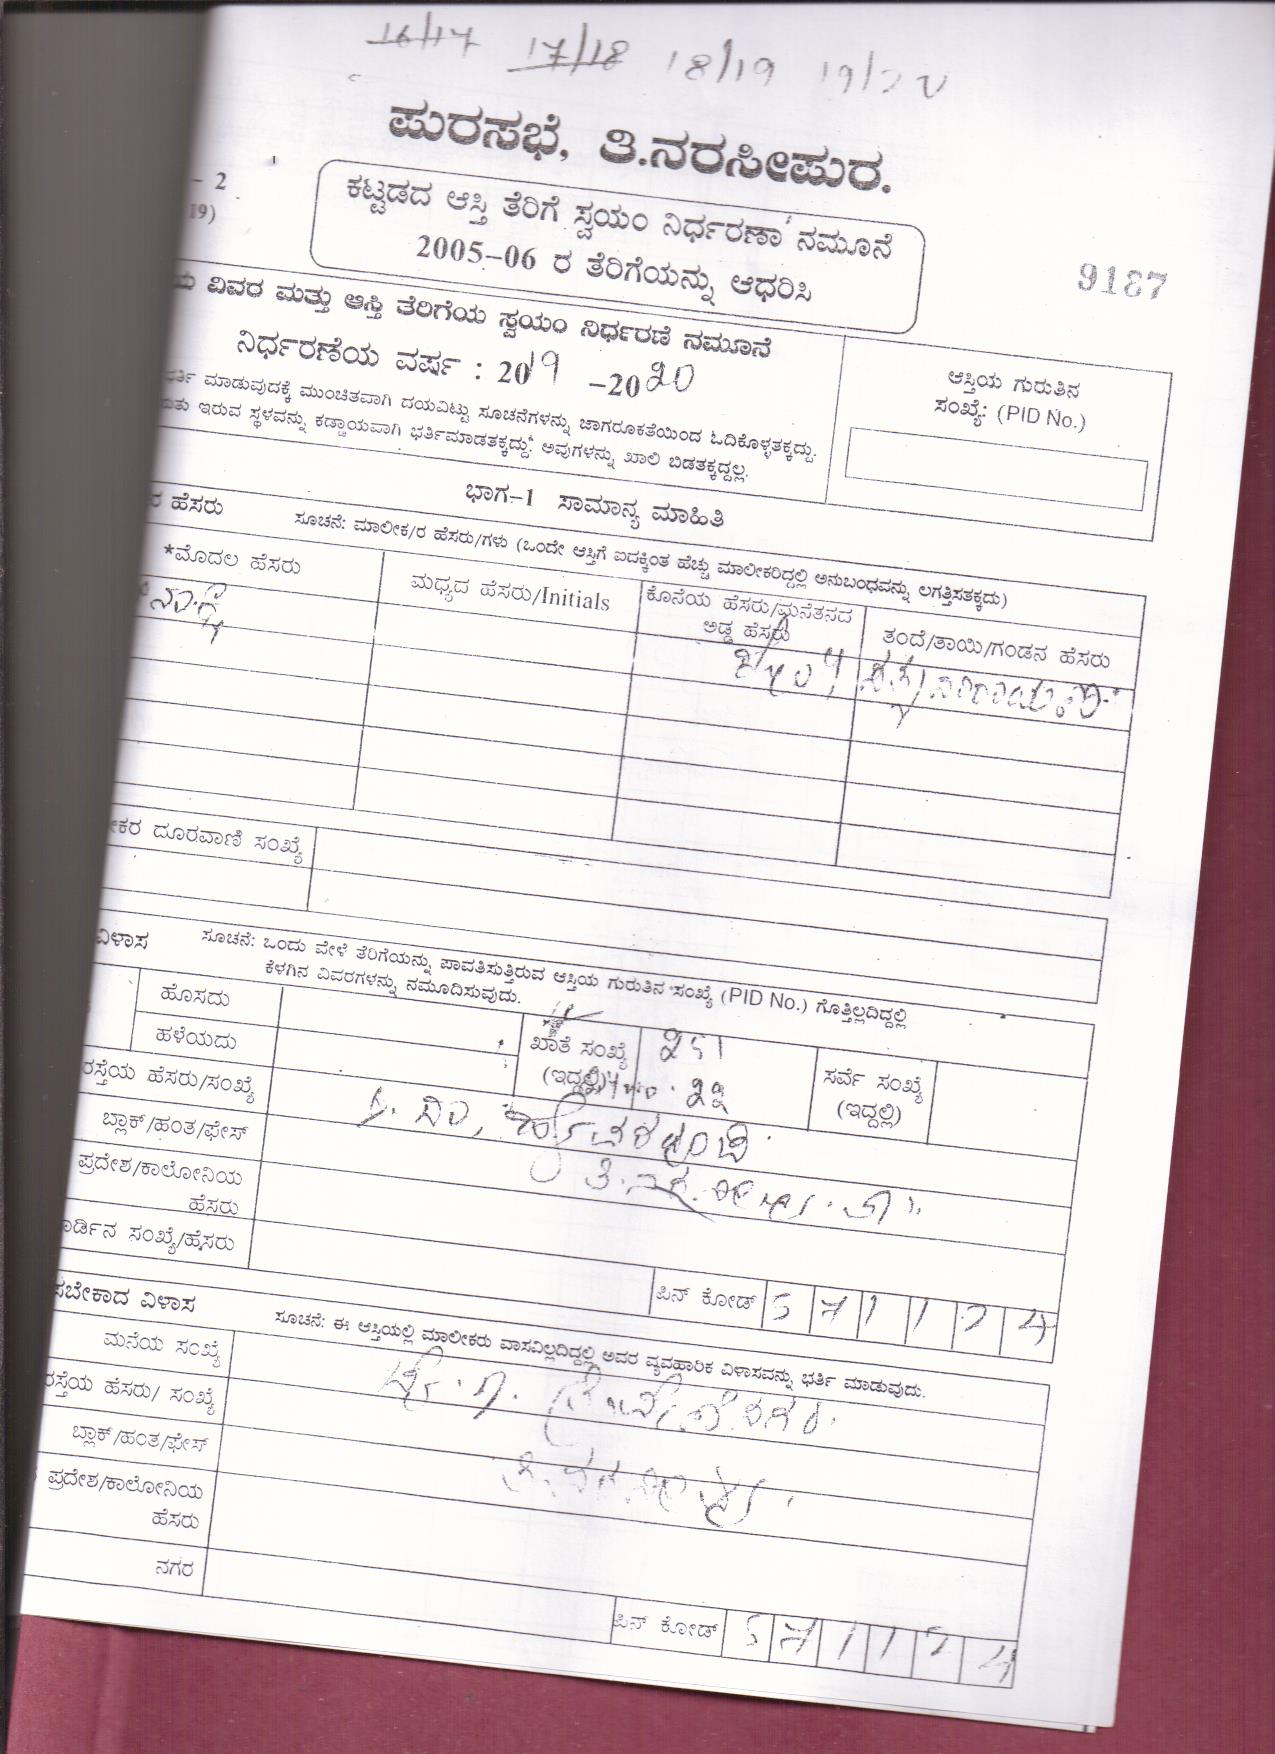 16/17 17/18 18/19 19/20
ಪುರಸಭೆ, ತಿ.ನರಸೀಪುರ.
- 2
19)
ಕಟ್ಟಡದ ಆಸ್ತಿ ತೆರಿಗೆ ಸ್ವಯಂ ನಿರ್ಧರಣಾ ನಮೂನೆ
2005-06 ರ ತೆರಿಗೆಯನ್ನು ಆಧರಿಸಿ
9187
ಯ ವಿವರ ಮತ್ತು ಆಸ್ತಿ ತೆರಿಗೆಯ ಸ್ವಯಂ ನಿರ್ಧರಣೆ ನಮೂನೆ
ನಿರ್ಧರಣೆಯ ವರ್ಷ : 2019 -2020
ಭರ್ತಿ ಮಾಡುವುದಕ್ಕೆ ಮುಂಚಿತವಾಗಿ ದಯವಿಟ್ಟು ಸೂಚನೆಗಳನ್ನು ಜಾಗರೂಕತೆಯಿಂದ ಓದಿಕೊಳ್ಳತಕ್ಕದ್ದು.
ಇರುವ ಸ್ಥಳವನ್ನು ಕಡ್ಡಾಯವಾಗಿ ಭರ್ತಿಮಾಡತಕ್ಕದ್ದು. ಅವುಗಳನ್ನು ಖಾಲಿ ಬಿಡತಕ್ಕದ್ದಲ್ಲ.
ಆಸ್ತಿಯ ಗುರುತಿನ
ಸಂಖ್ಯೆ: (PID No.)
ಭಾಗ-1 ಸಾಮಾನ್ಯ ಮಾಹಿತಿ
ರ ಹೆಸರು ಸೂಚನೆ: ಮಾಲೀಕ/ರ ಹೆಸರು/ಗಳು (ಒಂದೇ ಆಸ್ತಿಗೆ ಐದಕ್ಕಿಂತ ಹೆಚ್ಚು ಮಾಲೀಕರಿದ್ದಲ್ಲಿ ಅನುಬಂಧವನ್ನು ಲಗತ್ತಿಸತಕ್ಕದು)
*ಮೊದಲ ಹೆಸರು
ಮಧ್ಯದ ಹೆಸರು/Initials
ಕೊನೆಯ ಹೆಸರು/ಮನೆತನದ
ಅಡ್ಡ ಹೆಸರು
ತಂದೆ/ತಾಯಿ/ಗಂಡನ ಹೆಸರು
ಕರ ದೂರವಾಣಿ ಸಂಖ್ಯೆ
ವಿಳಾಸ ಸೂಚನೆ: ಒಂದು ವೇಳೆ ತೆರಿಗೆಯನ್ನು ಪಾವತಿಸುತ್ತಿರುವ ಆಸ್ತಿಯ ಗುರುತಿನ ಸಂಖ್ಯೆ (PID No.) ಗೊತ್ತಿಲ್ಲದಿದ್ದಲ್ಲಿ
ಕೆಳಗಿನ ವಿವರಗಳನ್ನು ನಮೂದಿಸುವುದು.
ಹೊಸದು
ಹಳೆಯದು
ಖಾತೆ ಸಂಖ್ಯೆ
(ಇದ್ದಲ್ಲಿ)
ಸರ್ವೆ ಸಂಖ್ಯೆ
(ಇದ್ದಲ್ಲಿ)
ರಸ್ತೆಯ ಹೆಸರು/ಸಂಖ್ಯೆ
ಬ್ಲಾಕ್/ಹಂತ/ಫೇಸ್
ಪ್ರದೇಶ/ಕಾಲೋನಿಯ
ಹೆಸರು
ರ್ಡಿನ ಸಂಖ್ಯೆ/ಹೆಸರು
ಪಿನ್ ಕೋಡ್ 5 7 1 1 2 4
ಸಬೇಕಾದ ವಿಳಾಸ ಸೂಚನೆ: ಈ ಆಸ್ತಿಯಲ್ಲಿ ಮಾಲೀಕರು ವಾಸವಿಲ್ಲದಿದ್ದಲ್ಲಿ ಅವರ ವ್ಯವಹಾರಿಕ ವಿಳಾಸವನ್ನು ಭರ್ತಿ ಮಾಡುವುದು.
ಮನೆಯ ಸಂಖ್ಯೆ
ರಸ್ತೆಯ ಹೆಸರು/ ಸಂಖ್ಯೆ
ಬ್ಲಾಕ್/ಹಂತ/ಫೇಸ್
ಪ್ರದೇಶ/ಕಾಲೋನಿಯ
ಹೆಸರು
ನಗರ
ಪಿನ್ ಕೋಡ್ 5 7 1 1 2 4